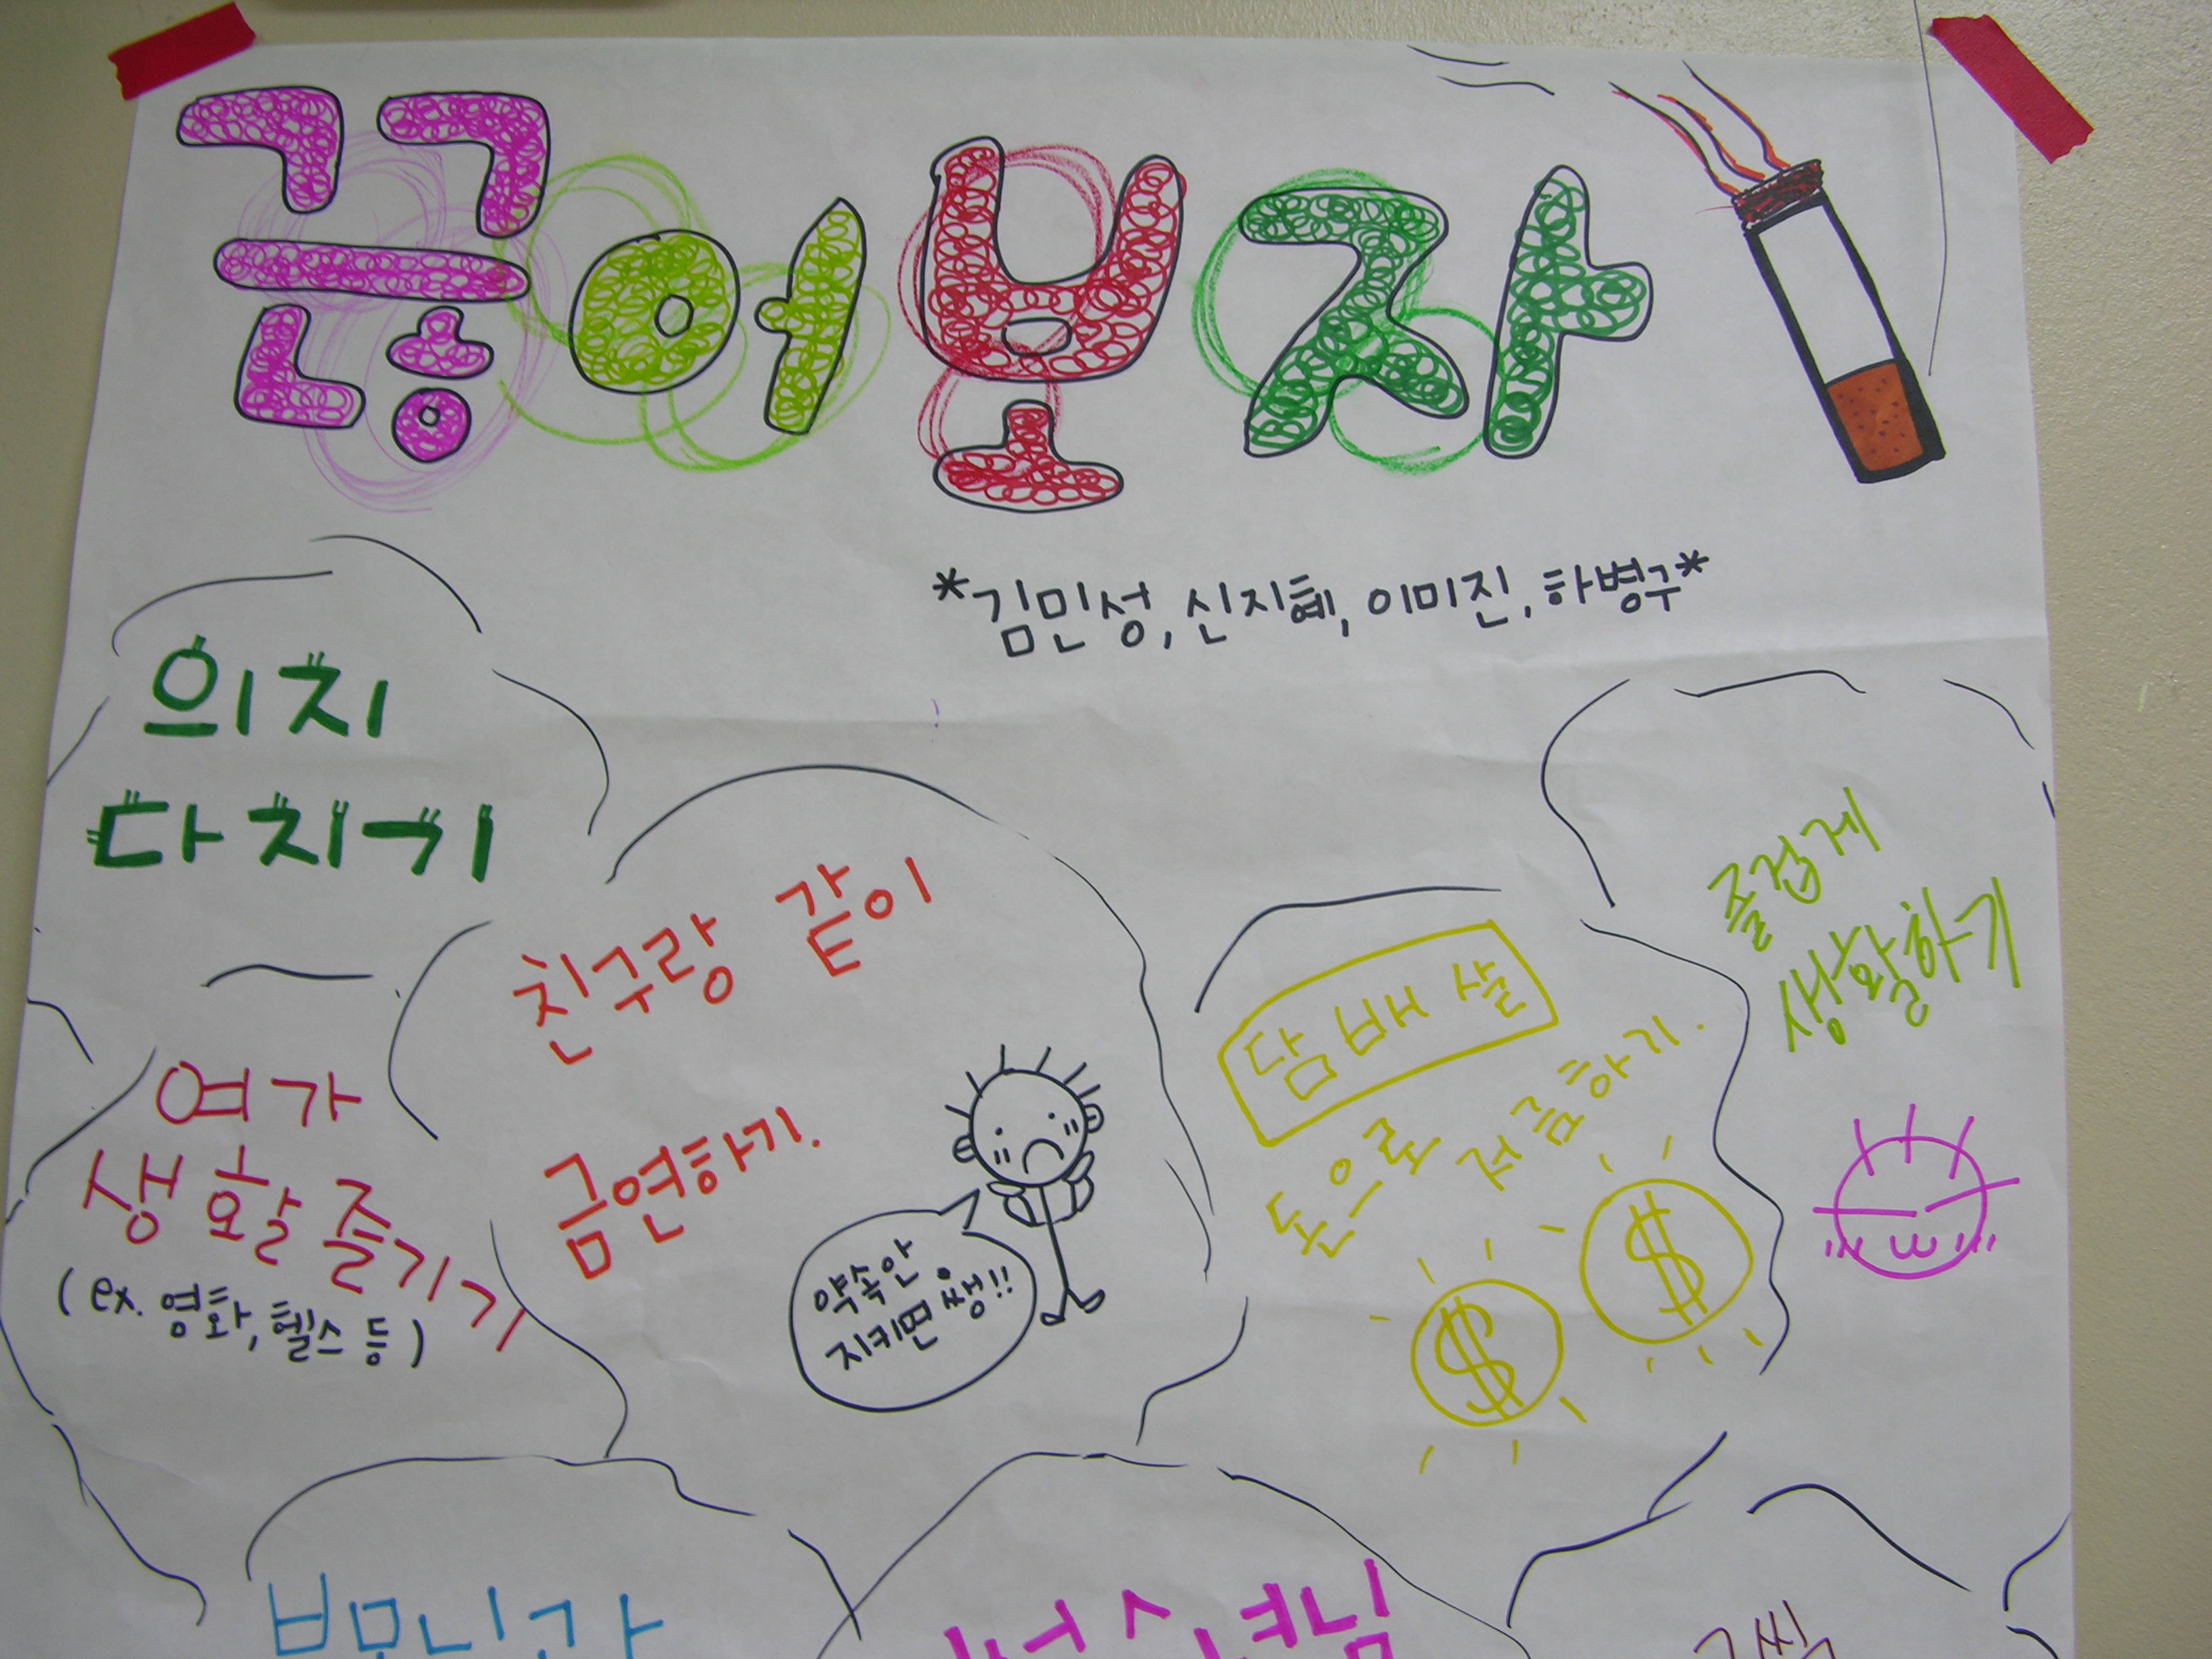 끊어보자
*김민성, 신지혜, 이미진, 하병구*
의지
다지기
친구랑 같이
금연하기.
약속 안
지키면 쌩!!
여가
생활 즐기기
(ex. 영화, 헬스 등)
담배 살
돈으로 저금하기.
즐겁게
생활하기
$
$
부모님과